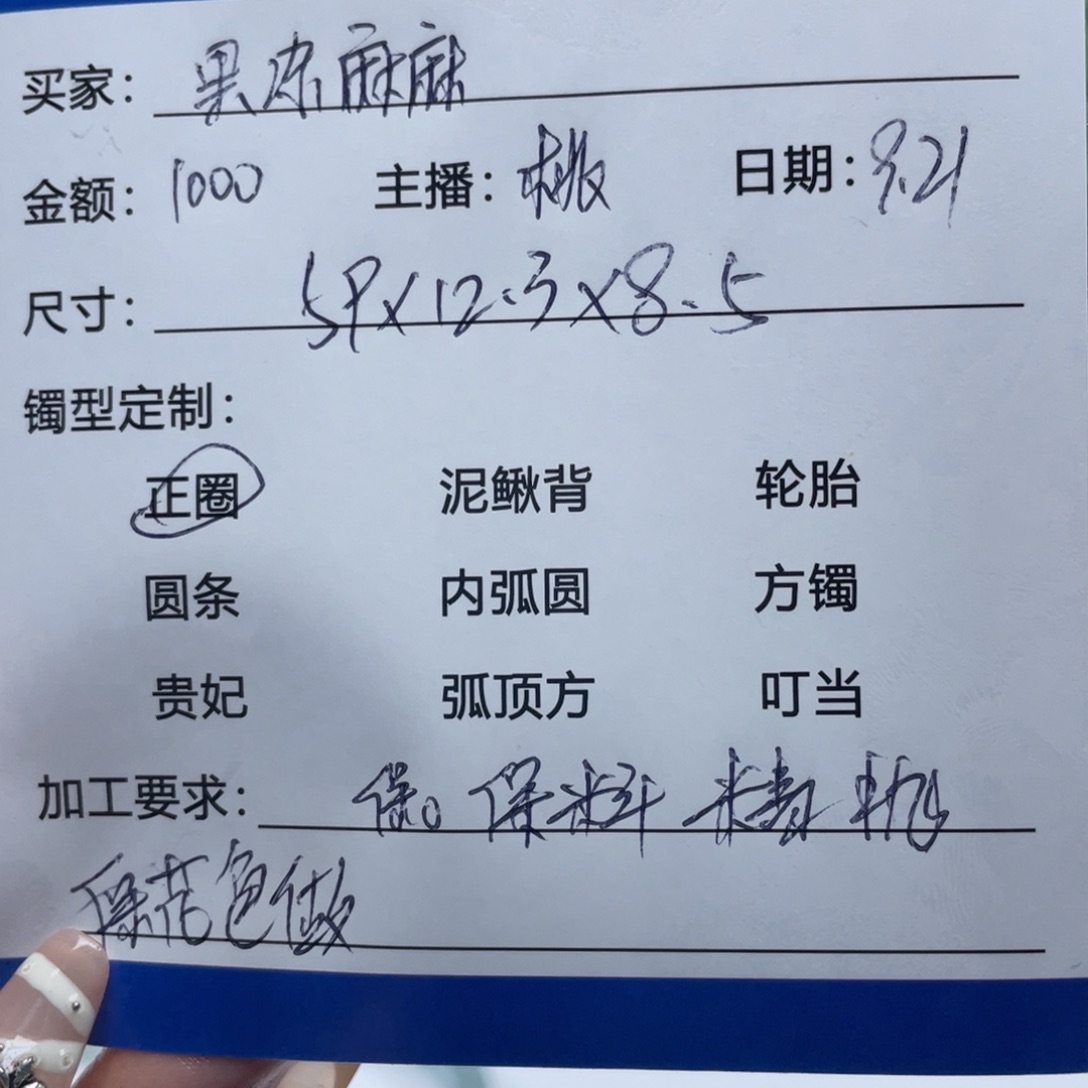 买家：果冻麻麻
金额：1000 主播：桃 日期：9.21
尺寸：59×12.3×8.5
镯型定制：
正圈 泥鳅背 轮胎
圆条 内弧圆 方镯
贵妃 弧顶方 叮当
加工要求：保。保料 精抛
保花色做